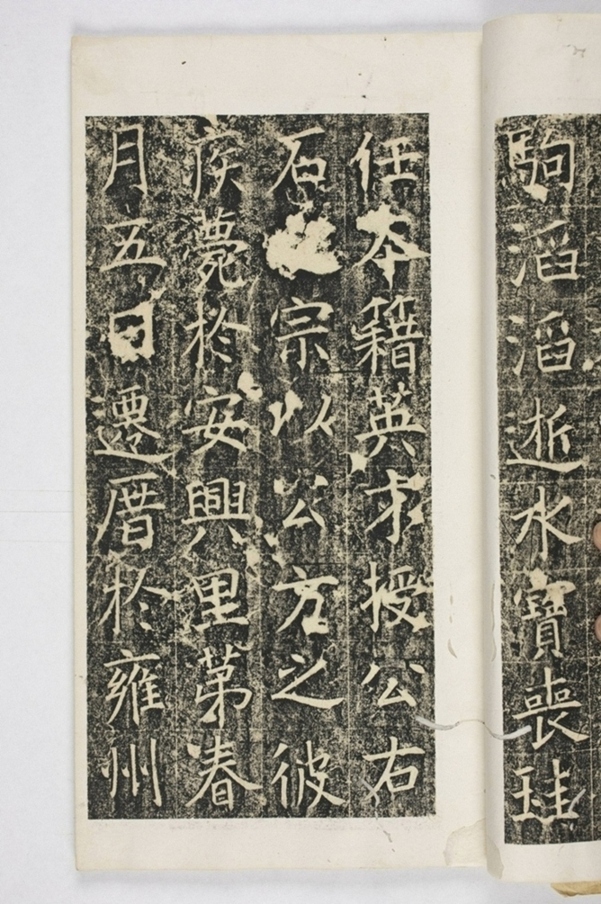 駒滔滔逝水寶喪珪
任本籍英求授公右
石宗以公方之彼
疾薨於安興里第春
月五日遷厝於雍州